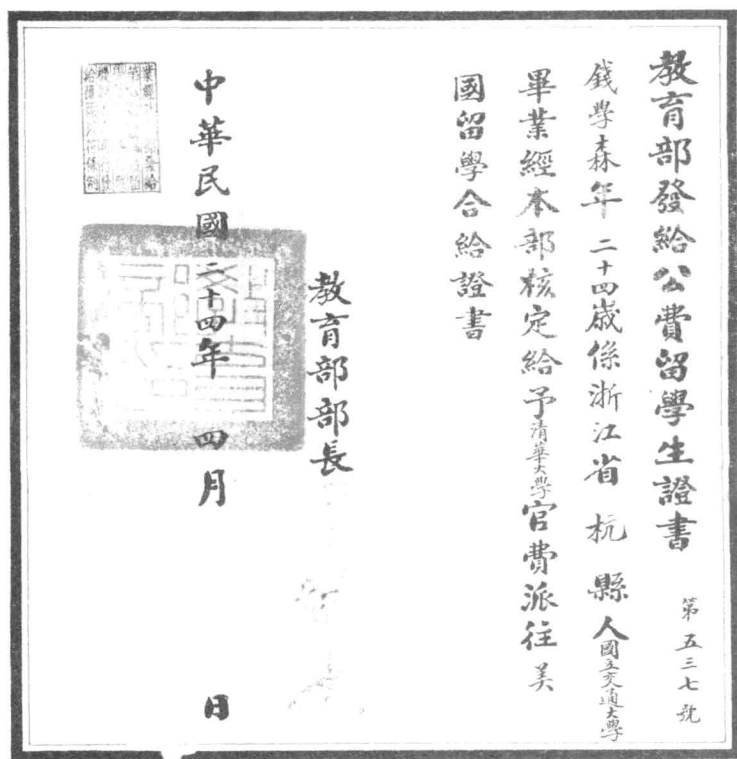 教育部發給公費留學生證書
第五三七號
錢學森年二十四歲係浙江省杭縣人國立交通大學
畢業經本部核定給予清華大學官費派往美
國留學合給證書
教育部部長
中華民國二十四年四月 日